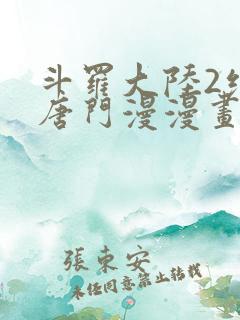 斗羅大陸2絕
唐門漫漫畫
張東安
未經同意禁止轉載